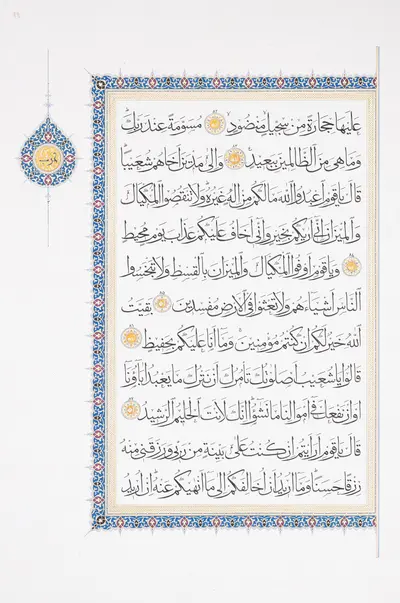 عليها حجارة من سجيل منضود مسومة عند ربك
وما هي من الظالمين ببعيد والى مدين اخاهم شعيبا
قال يا قوم اعبدوا الله ما لكم من اله غيره ولا تنقصوا المكيال
والميزان اني اريكم بخير واني اخاف عليكم عذاب يوم محيط
ويا قوم اوفوا المكيال والميزان بالقسط ولا تبخسوا
الناس اشياءهم ولا تعثوا في الارض مفسدين بقيت
الله خير لكم ان كنتم مؤمنين وما انا عليكم بحفيظ
قالوا يا شعيب اصلوتك تامرك ان نترك ما يعبد اباؤنا
او ان نفعل في اموالنا ما نشؤا انك لانت الحليم الرشيد
قال يا قوم ارايتم ان كنت على بينة من ربي ورزقني منه
رزقا حسنا وما اريد ان اخالفكم الى ما انهيكم عنه ان اريد